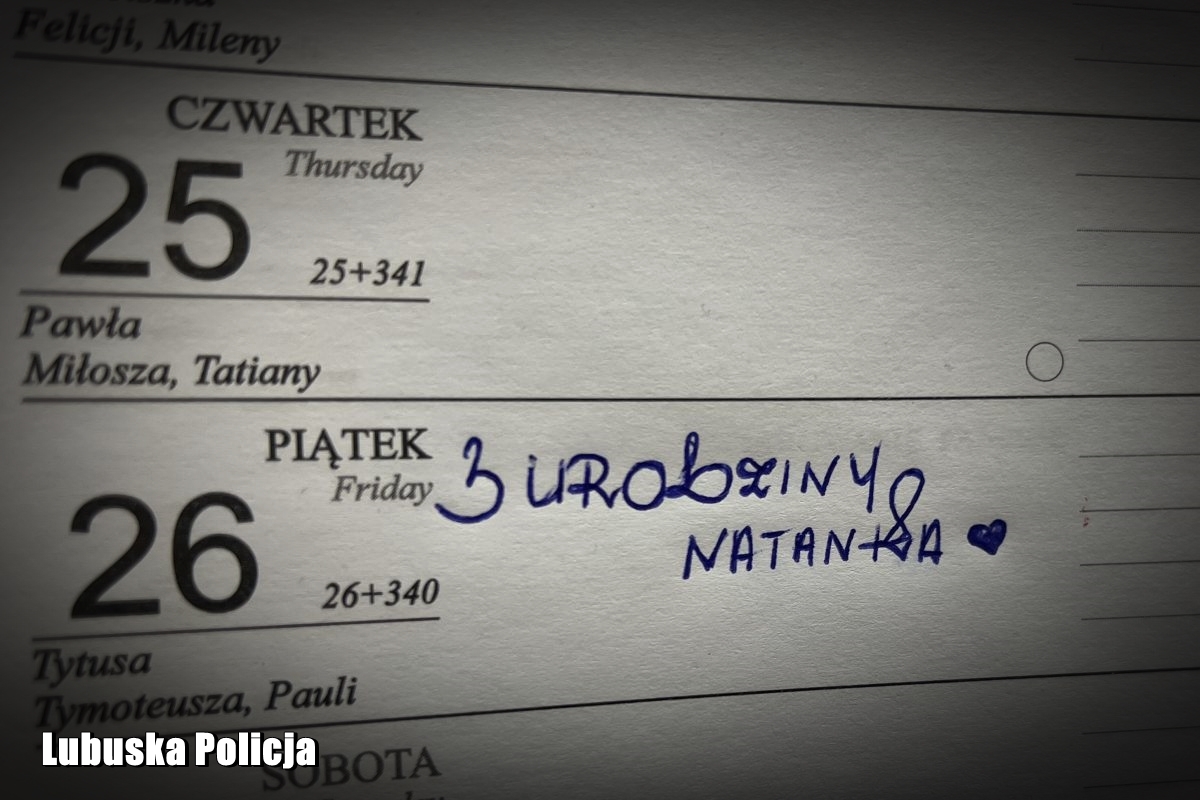 Felicji, Mileny
CZWARTEK
Thursday
25
25+341
Pawła
Miłosza, Tatiany
PIĄTEK
Friday
26
26+340
3 URODZINY
NATANKA
Tytusa
Tymoteusza, Pauli
SOBOTA
Lubuska Policja